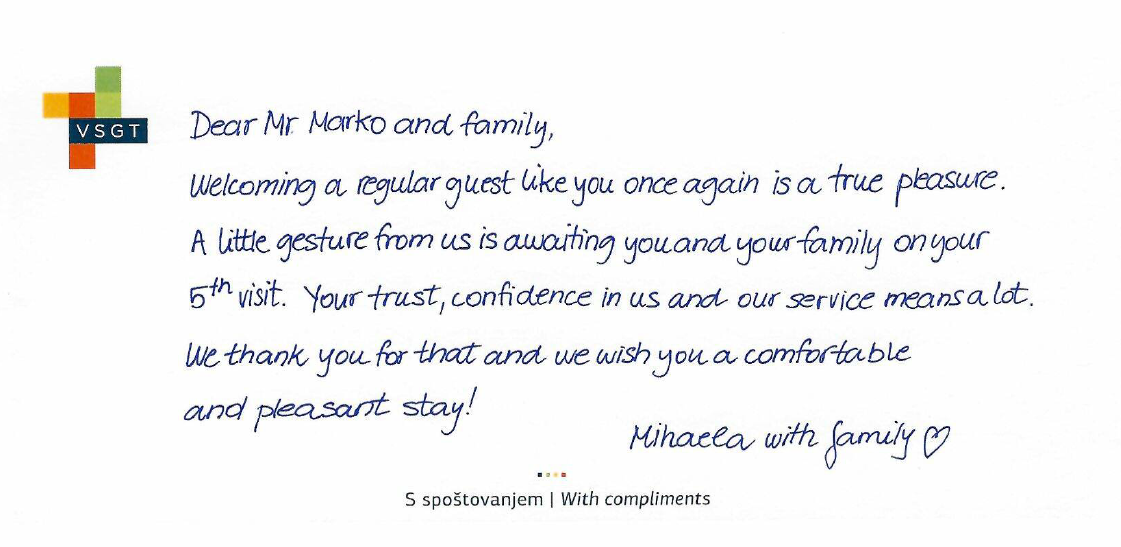 VSGT
Dear Mr Marko and family,
Welcoming a regular guest like you once again is a true pleasure.
A little gesture from us is awaiting you and your family on your
5th visit. Your trust, confidence in us and our service means a lot.
We thank you for that and we wish you a comfortable
and pleasant stay!
Mihaela with family ♡
S spoštovanjem | With compliments